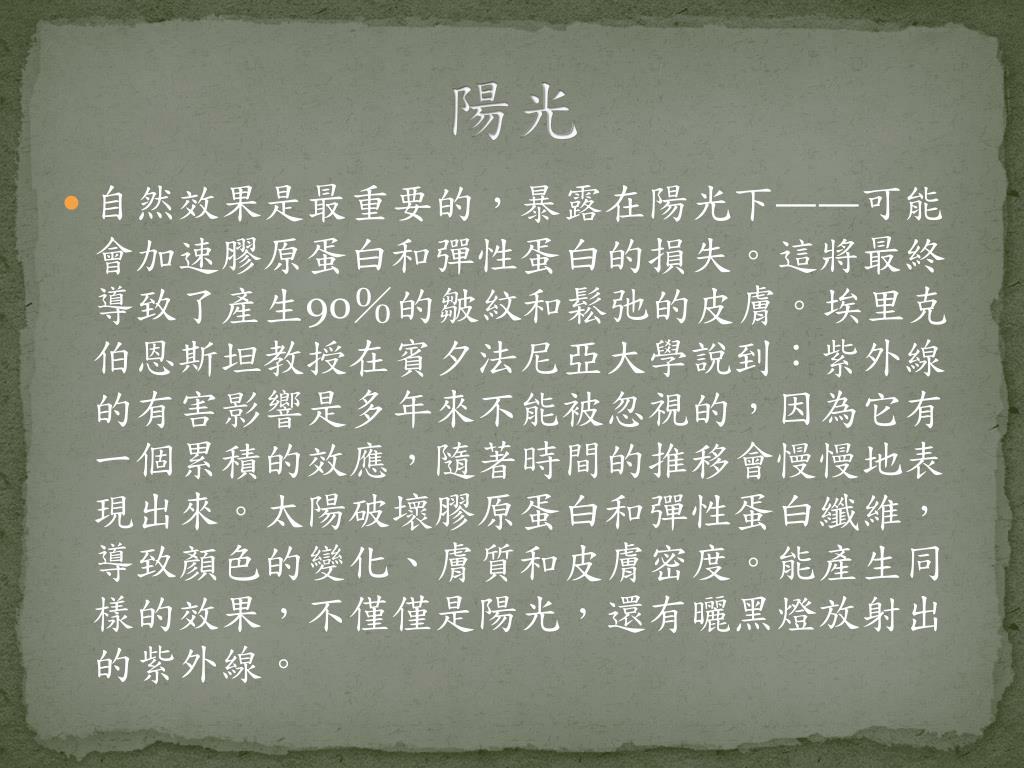 陽光
自然效果是最重要的，暴露在陽光下——可能
會加速膠原蛋白和彈性蛋白的損失。這將最終
導致了產生90％的皺紋和鬆弛的皮膚。埃里克
伯恩斯坦教授在賓夕法尼亞大學說到：紫外線
的有害影響是多年來不能被忽視的，因為它有
一個累積的效應，隨著時間的推移會慢慢地表
現出來。太陽破壞膠原蛋白和彈性蛋白纖維，
導致顏色的變化、膚質和皮膚密度。能產生同
樣的效果，不僅僅是陽光，還有曬黑燈放射出
的紫外線。